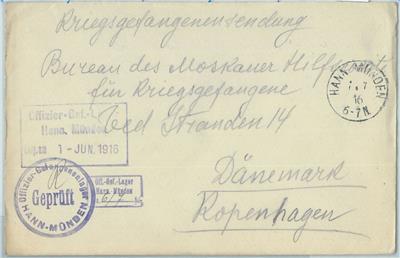 Kriegsgefangenensendung
Bureau des Moskauer Hilfs
für Kriegsgefangene
HANN. MÜNDEN
7. 7
16
6-7N.
Offizier-Gef.-L
Hann. Münden
1 - JUN. 1916
Ved Stranden 14
Offizier-Gefangenenlager
Geprüft
HANN-MÜNDEN
Off.-Gef.-Lager
Hann. Münden
6/7
Dänemark
Kopenhagen